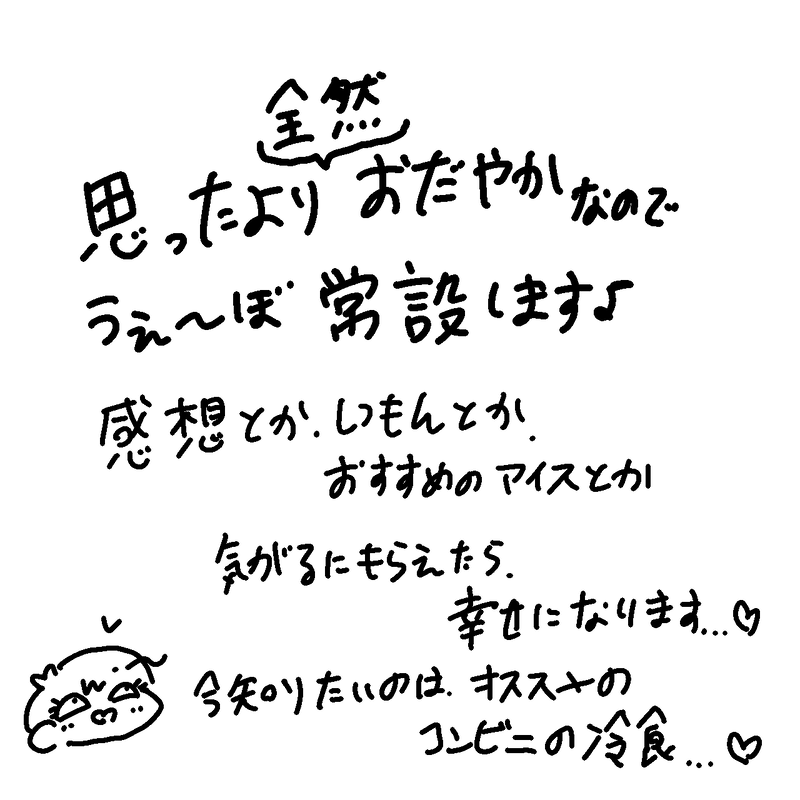 全然
思ったより おだやかなので
うぇ〜ぼ 常設します♪
感想とか.しつもんとか.
おすすめの アイスとか
気がるにもらえたら.
幸せになります...♡
今知りたいのは.オススメの
コンビニの冷食...♡